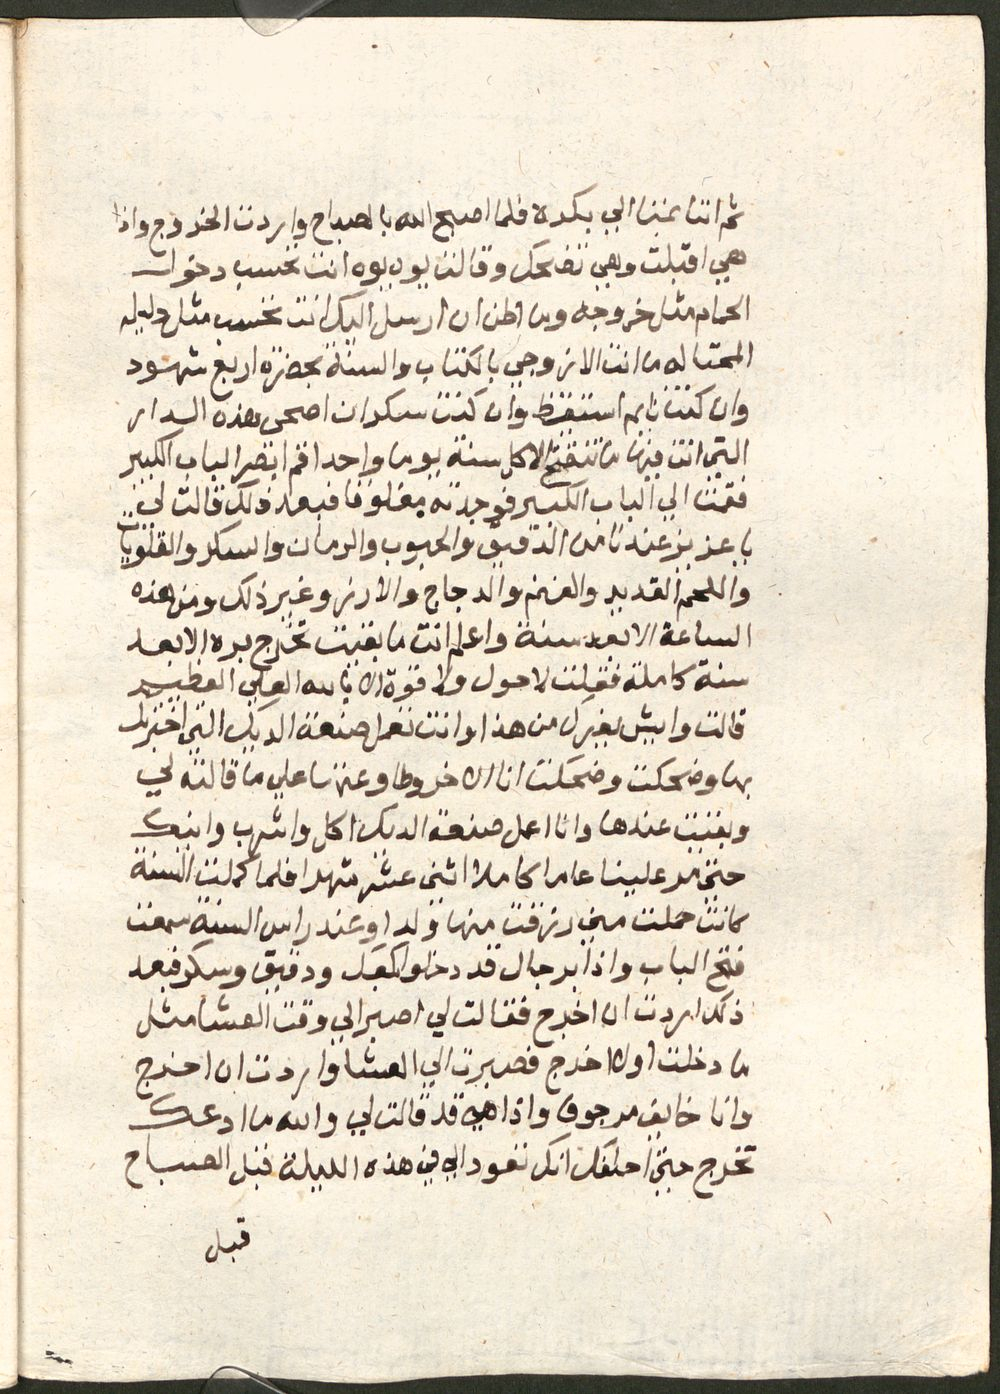 ثم اننا نمنا الي بكره فلما اصبح الله بالصباح واردت الخروج واذا
هي اقبلت وهي تضحك وقالت يوه يوه انت تحسب دخول
الحمام مثل خروجه وما اظن ان ارسل اليك انت تحسب مثل دليله
المحتاله ما انت الا زوجي بالكتاب والسنة بحضرة اربع شهود
وان كنت نايم استيقظ وان كنت سكران اصحى هذه الدار
التي انت فيها ما تنفتح الا كل سنة يوما واحدا قم ابصر الباب الكبير
فقمت الي الباب الكبير فوجدته مغلوقا فبعد ذلك قالت لي
يا عزيز عندنا من الدقيق والحبوب والرمان والسكر والقلوبات
واللحم القديد والغنم والدجاج والارز وغير ذلك ومن هذه
الساعة الا بعد سنة واعلم انت ما بقيت تخرج بره الا بعد
سنة كاملة فقلت لا حول ولا قوة الا بالله العلي العظيم
قالت وايش يغيرك من هذا وانت تعمل صنعة الديك التي اخبرتك
بها وضحكت وضحكت انا الاخر وطاوعتها علي ما قالته لي
وبقيت عندها وانا اعمل صنعة الديك اكل واشرب وانيك
حتى مر علينا عاما كاملا اثنى عشر شهرا فلما كملت السنة
كانت حملت مني رزقت منها ولدا وعند راس السنة سمعت
فتح الباب واذا برجال قد دخلوا بكعك ودقيق وسكر فبعد
ذلك اردت ان اخرج فقالت لي اصبر الي وقت العشا مثل
ما دخلت اولا اخرج فصبرت الي العشا واردت ان اخرج
وانا خايف مرجوف واذا هي قد قالت لي والله ما ادعك
تخرج حتى احلفك انك تعود الي في هذه الليلة قبل الصباح
قبل